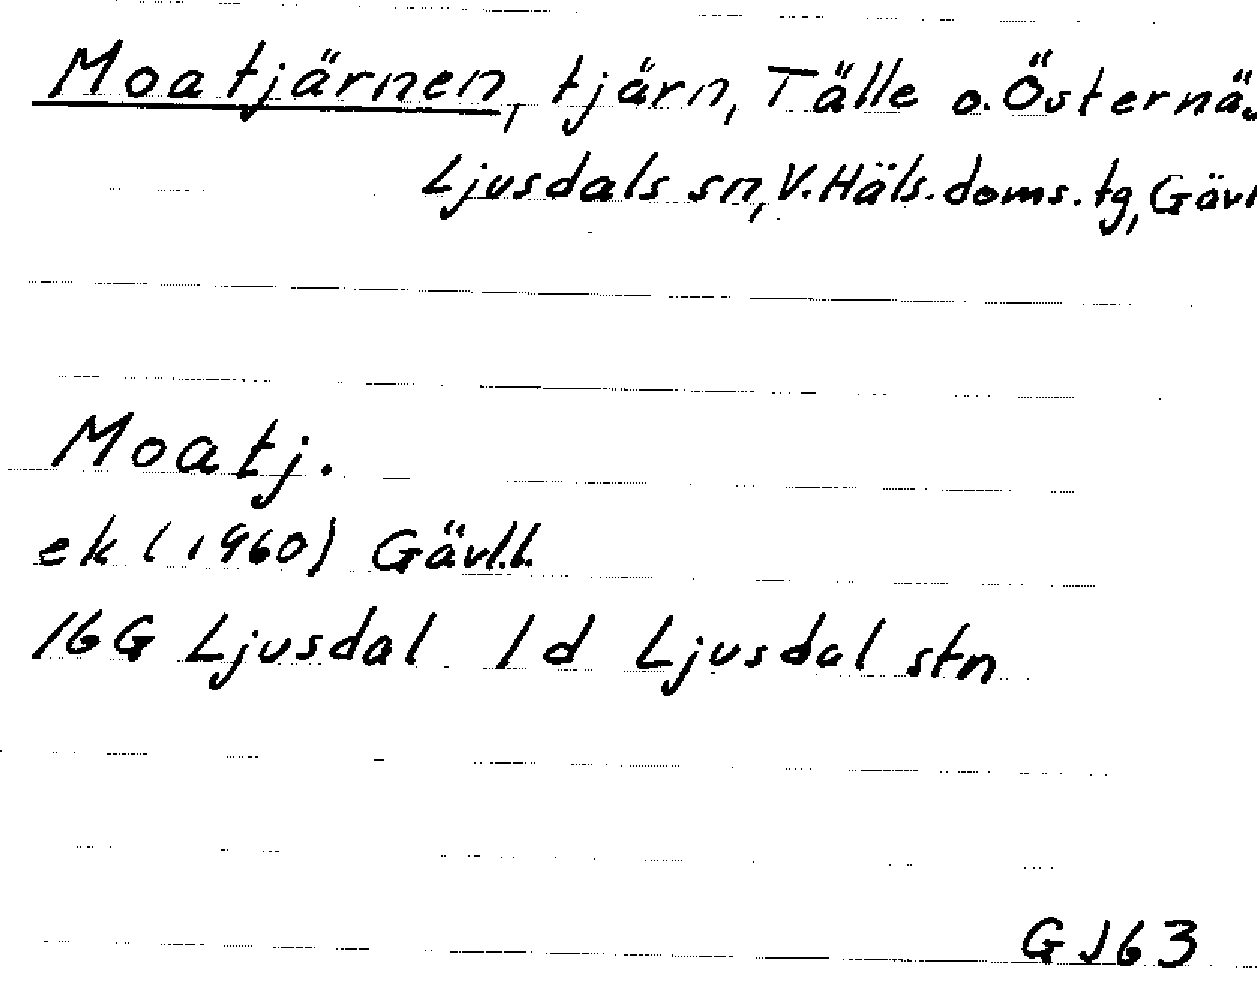 Moatjärnen, tjärn, Tälle o. Östernäs
Ljusdals sn, V. Häls. doms. tg, Gävl
Moatj.
ek (1960) Gävl.l.
16G Ljusdal 1d Ljusdal stn
GJ63